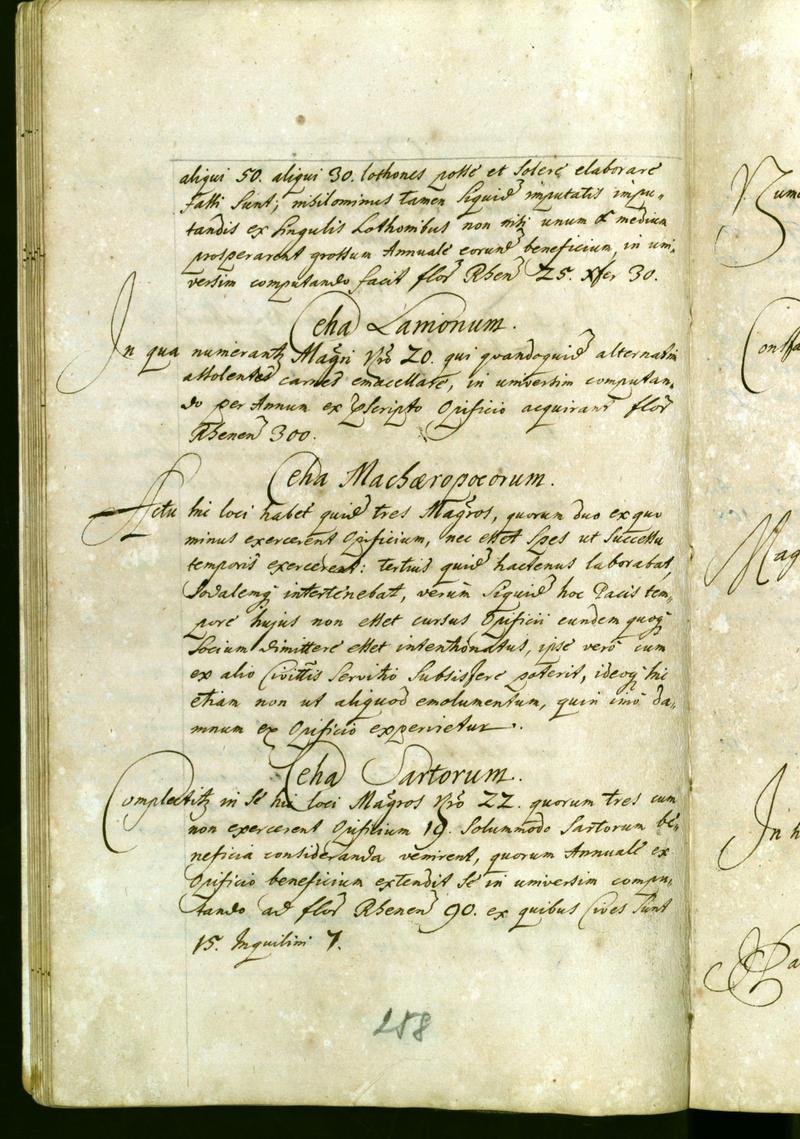 aliqui 50. aliqui 30. lothones posse et solere elaborare
fassi sunt; nihilominus tamen siquid imputatis impu„
tandis ex singulis Lothonibus non nisi unum et medium
prosperarent grossum Annuale eorund beneficium, in uni„
versim computando facit flor Rhen 25. xfer 30.
Ceha Lanionum.
In qua numerantz Magri Nro 20. qui quandoquid alternatim
assolent carnes emacellare, in universim computan„
do per Annum ex pscripto Opificio acquirant flor
Rhenen 300.
Ceha Machæropoeorum.
Actu hic loci habet quid tres Magros, quorum duo ex quo
minus exercerent Opificium, nec esset spes ut successu
temporis exercerent: tertius quid hactenus laborabat,
Sodalemq intertenebat, verum siquid hoc Pacis tem„
pore hujus non esset cursus Opificii eundem quoq
Socium dimittere esset intentionatus, ipse vero cum
ex alio Civittis servitio subsistere poterit, ideoq hic
etiam non ut aliquod emolumentum, quin imo da„
mnum ex Opificio experietur.
Ceha Sartorum.
Complectitz in se hic loci Magros Nro 22. quorum tres cum
non exercerent Opificium 19. solummodo Sartorum be„
neficia consideranda venirent, quorum Annuale ex
Opificio beneficium extendit se in universim compu„
tando ad flor Rhenen 90. ex quibus Cives sunt
15. Inquilini 7.
258